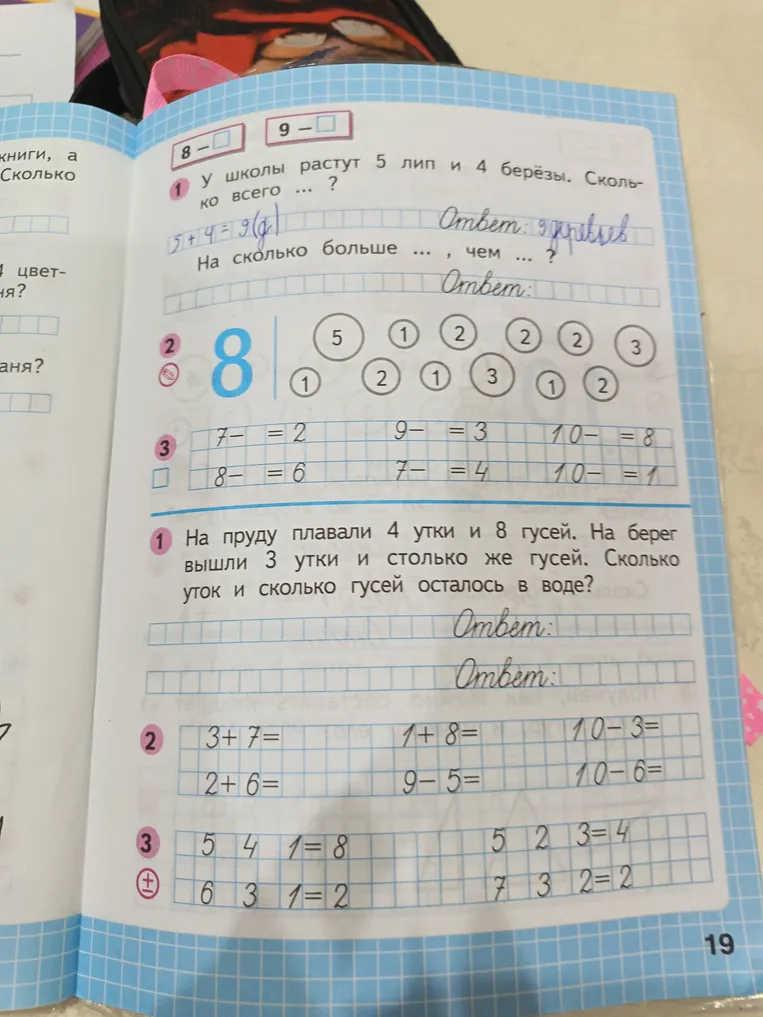 книги, а
Сколько
4 цвет-
ня?
аня?
8 – □
9 – □
1 У школы растут 5 лип и 4 берёзы. Сколь-
ко всего ... ?
5 + 4 = 9(д) Ответ: 9 деревьев
На сколько больше ... , чем ... ?
Ответ:
2 8 5 1 2 2 2 3
1 2 1 3 1 2
3 7– = 2 9– = 3 10– = 8
8– = 6 7– = 4 10– = 1
1 На пруду плавали 4 утки и 8 гусей. На берег
вышли 3 утки и столько же гусей. Сколько
уток и сколько гусей осталось в воде?
Ответ:
Ответ:
2 3+7= 1+8= 10–3=
2+6= 9–5= 10–6=
3 5 4 1=8 5 2 3=4
± 6 3 1=2 7 3 2=2
19